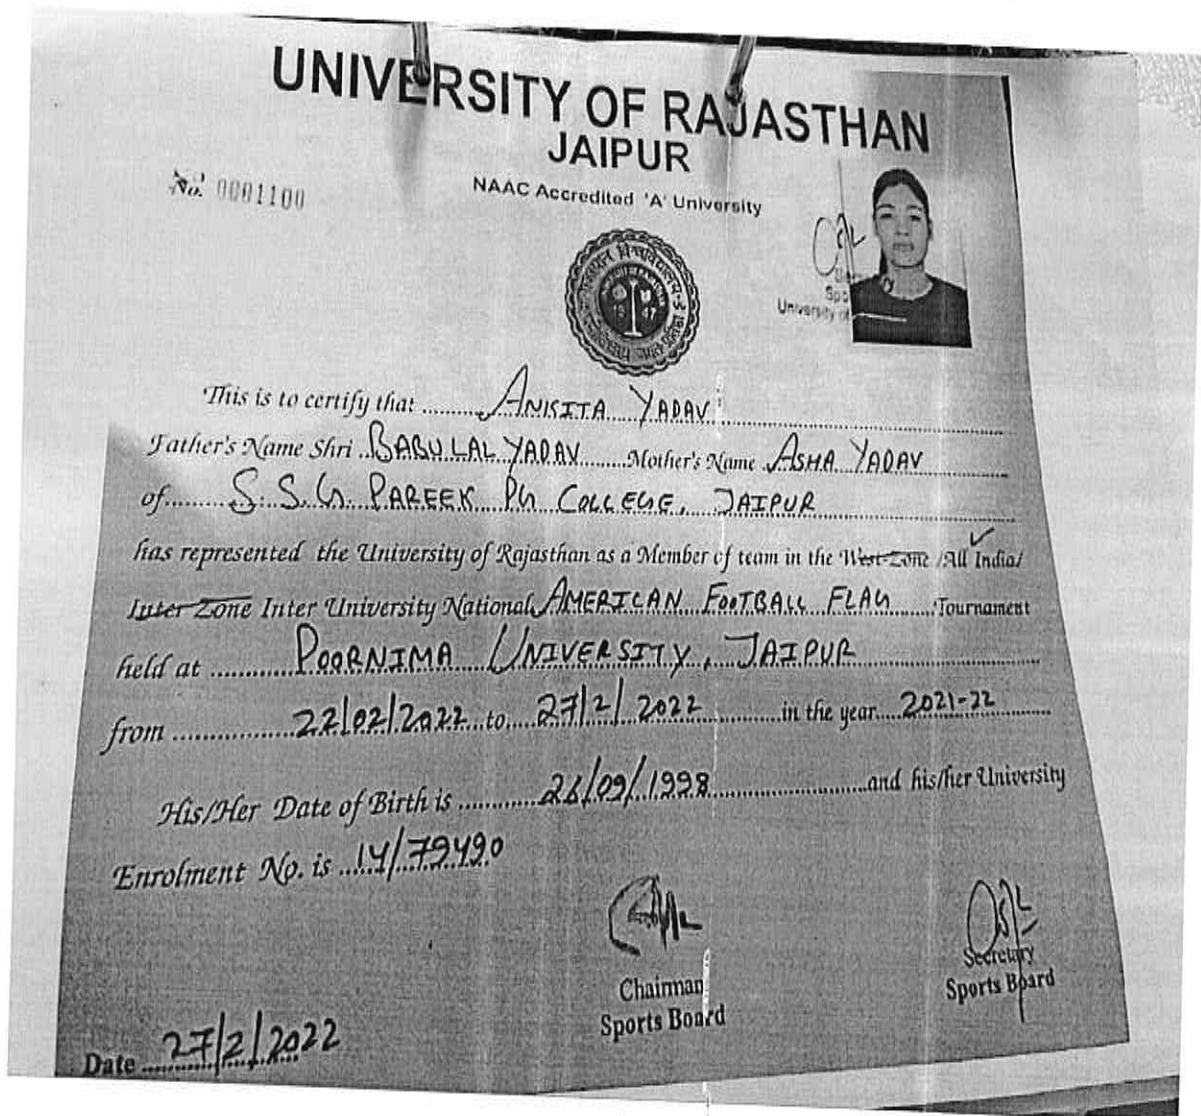 UNIVERSITY OF RAJASTHAN
JAIPUR
NAAC Accredited 'A' University
No. 0001100
1947
University of
This is to certify that ANKITA YADAV
Father's Name Shri BABULAL YADAV Mother's Name ASHA YADAV
of S.S.G. PAREEK PG COLLEGE, JAIPUR
has represented the University of Rajasthan as a Member of team in the West-Zone /All India/
Inter Zone Inter University National AMERICAN FOOTBALL FLAG Tournament
held at POORNIMA UNIVERSITY, JAIPUR
from 22/02/2022 to 27/2/2022 in the year 2021-22
His/Her Date of Birth is 26/09/1998 and his/her University
Enrolment No. is 14/79490
Chairman
Sports Board
Secretary
Sports Board
Date 27/2/2022